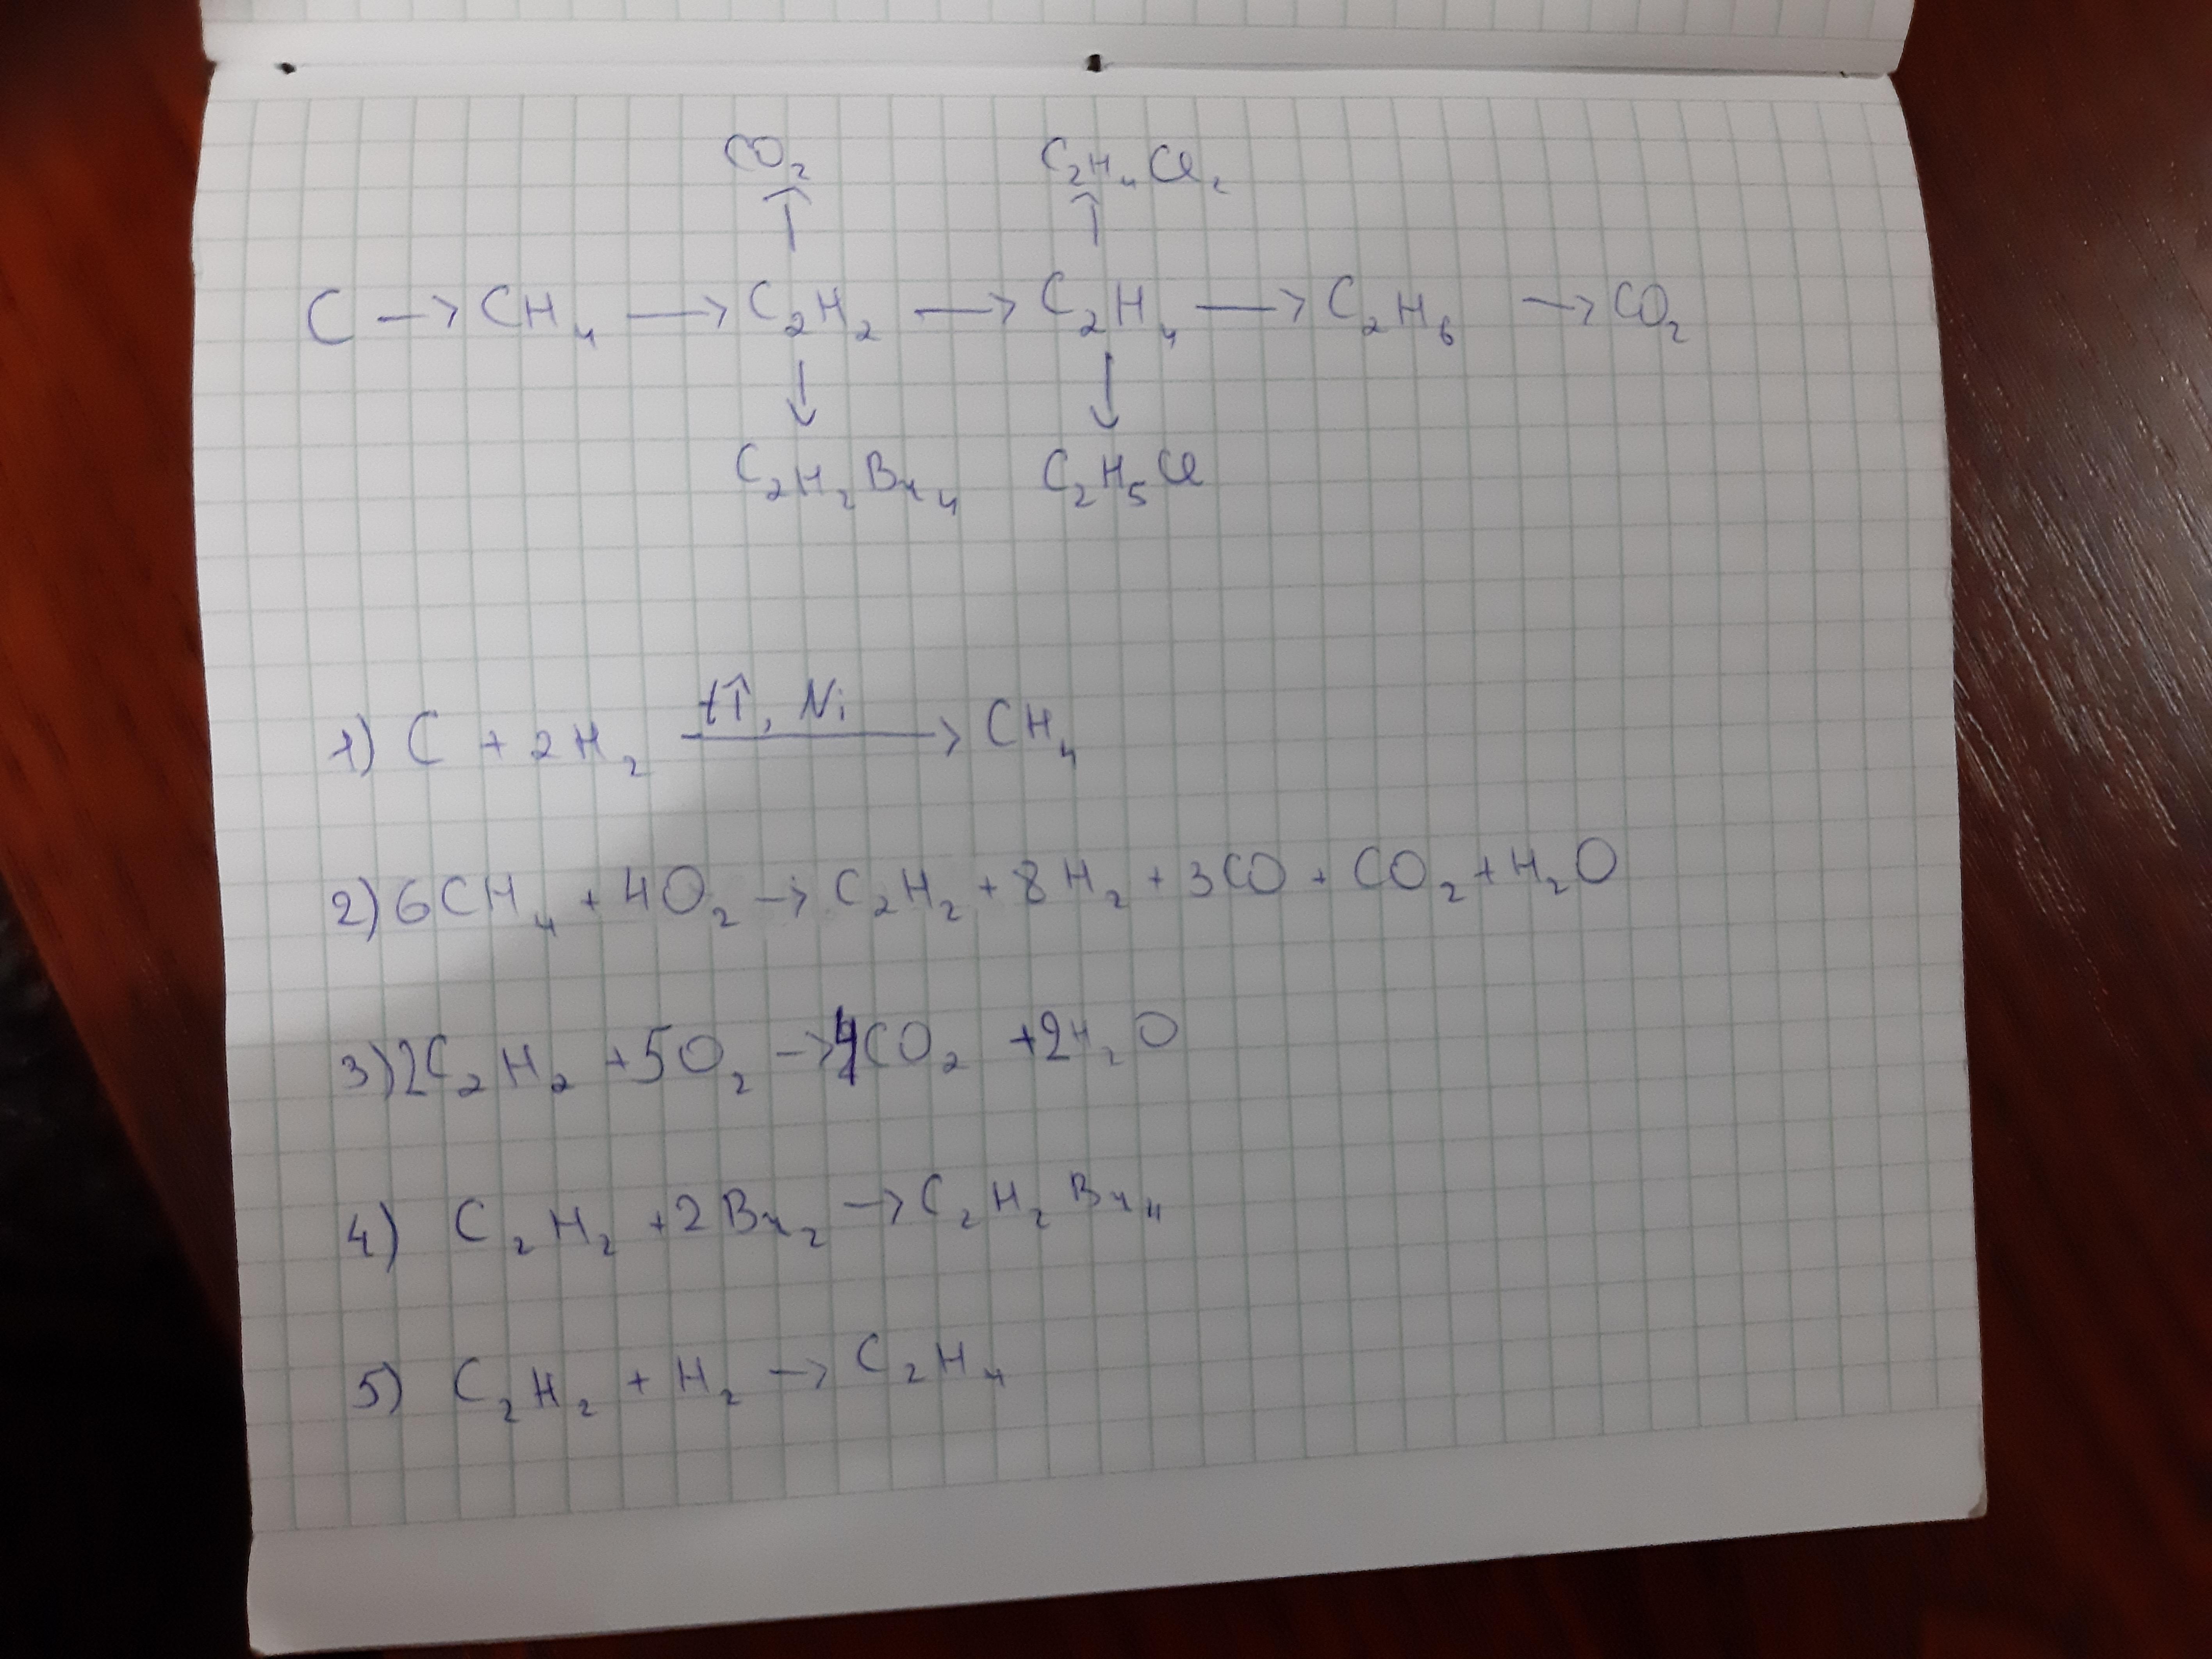 CO₂ C₂H₄Cl₂
↑ ↑
C → CH₄ → C₂H₂ → C₂H₄ → C₂H₆ → CO₂
↓ ↓
C₂H₂Br₄ C₂H₅Cl
1) C + 2H₂ t↑, Ni → CH₄
2) 6CH₄ + 4O₂ → C₂H₂ + 8H₂ + 3CO + CO₂ + H₂O
3) 2C₂H₂ + 5O₂ → 4CO₂ + 2H₂O
4) C₂H₂ + 2Br₂ → C₂H₂Br₄
5) C₂H₂ + H₂ → C₂H₄